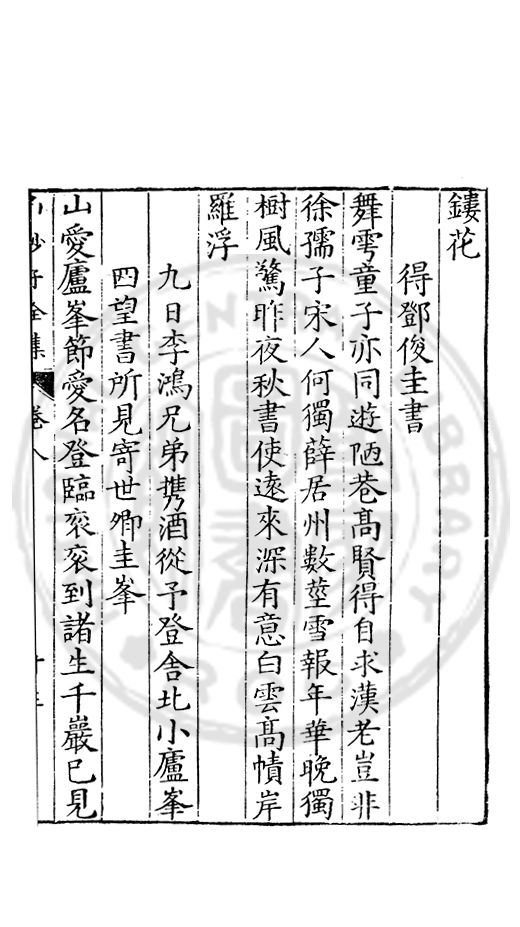 鏤花
得鄧俊圭書
舞雩童子亦同遊陋巷髙賢得自求漢老豈非
徐孺子宋人何獨薛居州數莖雪報年華晚獨
樹風驚昨夜秋書使遠來深有意白雲髙幘岸
羅浮
九日李鴻兄弟携酒從予登舍北小廬峯
四望書所見寄世卿圭峯
山愛廬峯節愛名登臨衮衮到諸生千巖已見
沙子全集 卷八